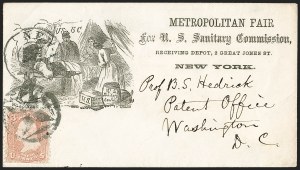 METROPOLITAN FAIR
For U. S. Sanitary Commission,
RECEIVING DEPOT, 2 GREAT JONES ST.
NEW YORK.
Prof B. S. Hedrick
Patent Office
Washington
D. C.